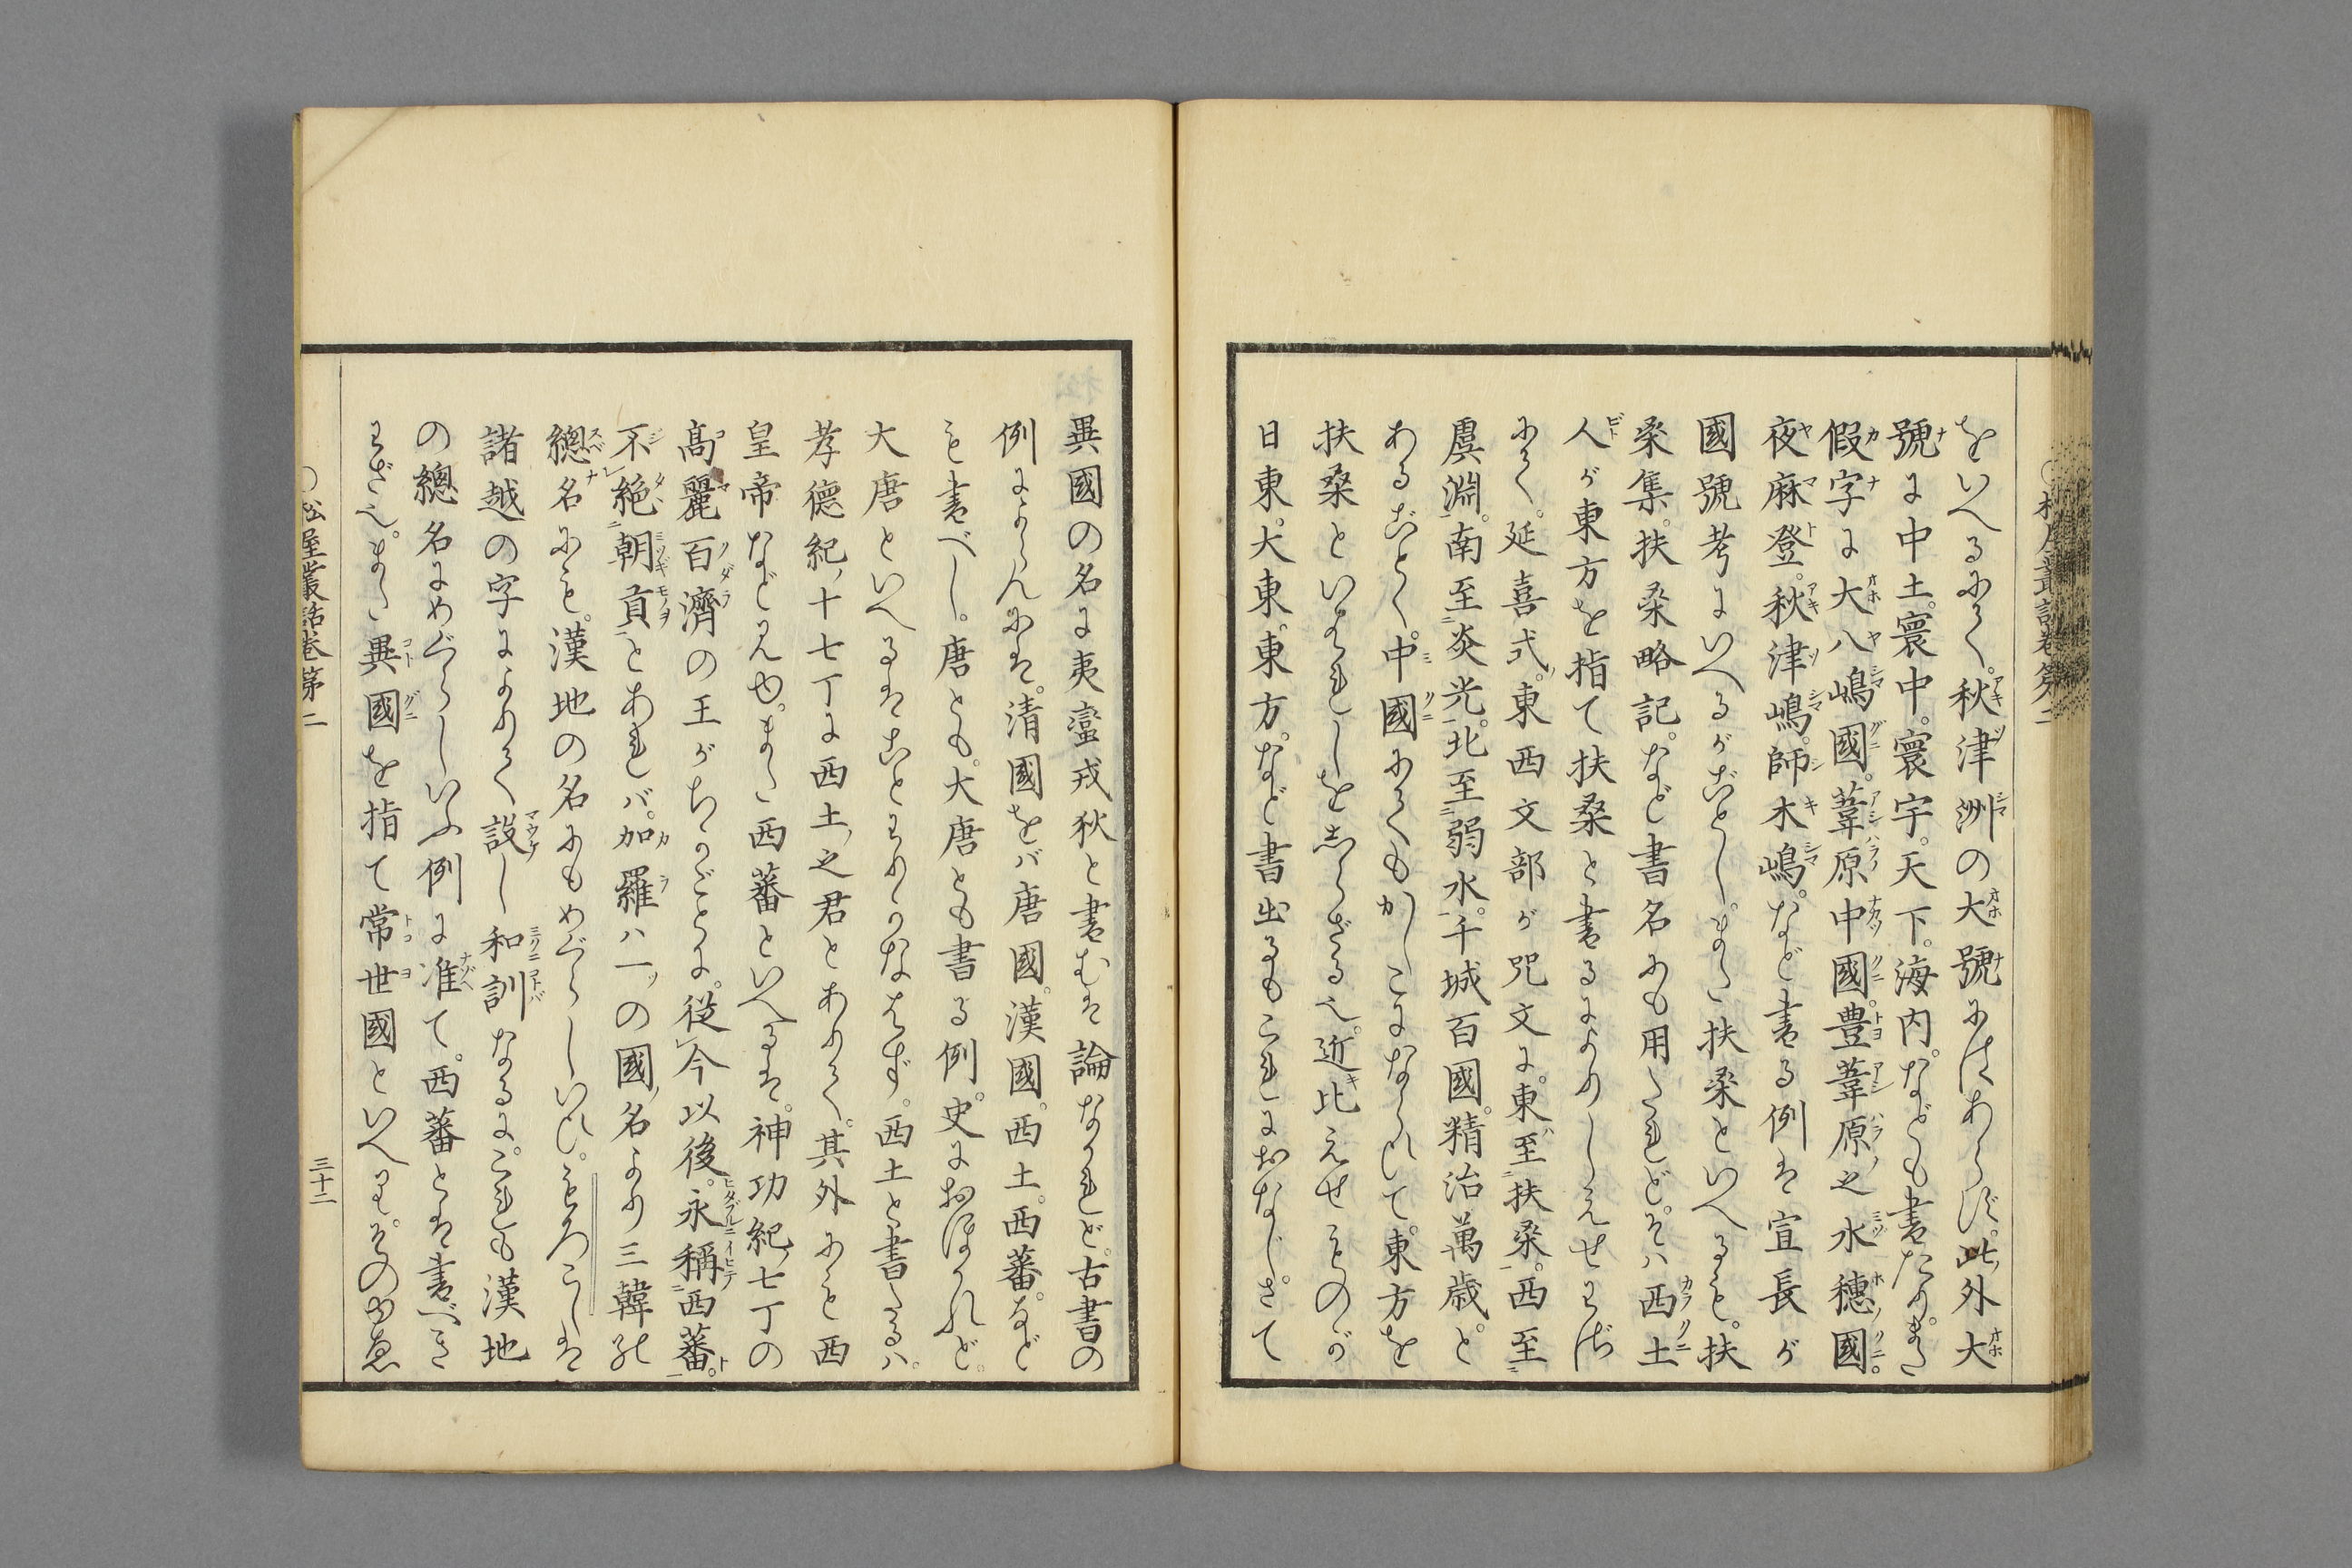 をいへるにて。秋津洲の大號にはあらず。此外大
號に中土。寰中。寰宇。天下。海内。なども書たり。また
假字に大八嶋國。葦原中國。豊葦原之水穂國。
夜麻登。秋津嶋。師木嶋。など書る例は宣長が
國號考にいへるがごとし。また扶桑といへるも。扶
桑集。扶桑略記。などの書名にも用たれど。そハ西土
人が東方を指て扶桑と書るによりしえせわざ
にて。延喜式。東西文部が咒文に。東至扶桑。西至
虞淵。南至炎光。北至弱水。千城百國。精治萬歳。と
あるごとく。中國にてもかしこにならひて。東方を
扶桑といはれしをしらざる也。近比えせものが
日東。大東。東方。など書出るもこれにおなじ。さて
異國の名に夷蠻戎狄と書むは論なけれど。古書の
例によらんには。清國をバ唐國。漢國。西土。西蕃。など
も書べし。唐とも。大唐とも書る例。史におほかれど。
大唐といへるはことわりかなはず。西土と書たるハ。
孝德紀十七丁に西土之君とありて。其外にも西
皇帝など見ゆ。また西蕃といへるは。神功紀七丁の
高麗百濟の王がちかごとに。從今以後。永稱西蕃。
不絶朝貢とあれバ。加羅ハ一ツの國名より三韓の
總名にも。漢地の名にもめぐらしいひ。もろこしは
諸越の字によりて設し和訓なるに。これも漢地
の總名にめぐらしいふ例に准て。西蕃とは書べき
わざ也。また異國を指て常世國といへり。そのゆゑ
〇松屋叢話巻第二
三十二